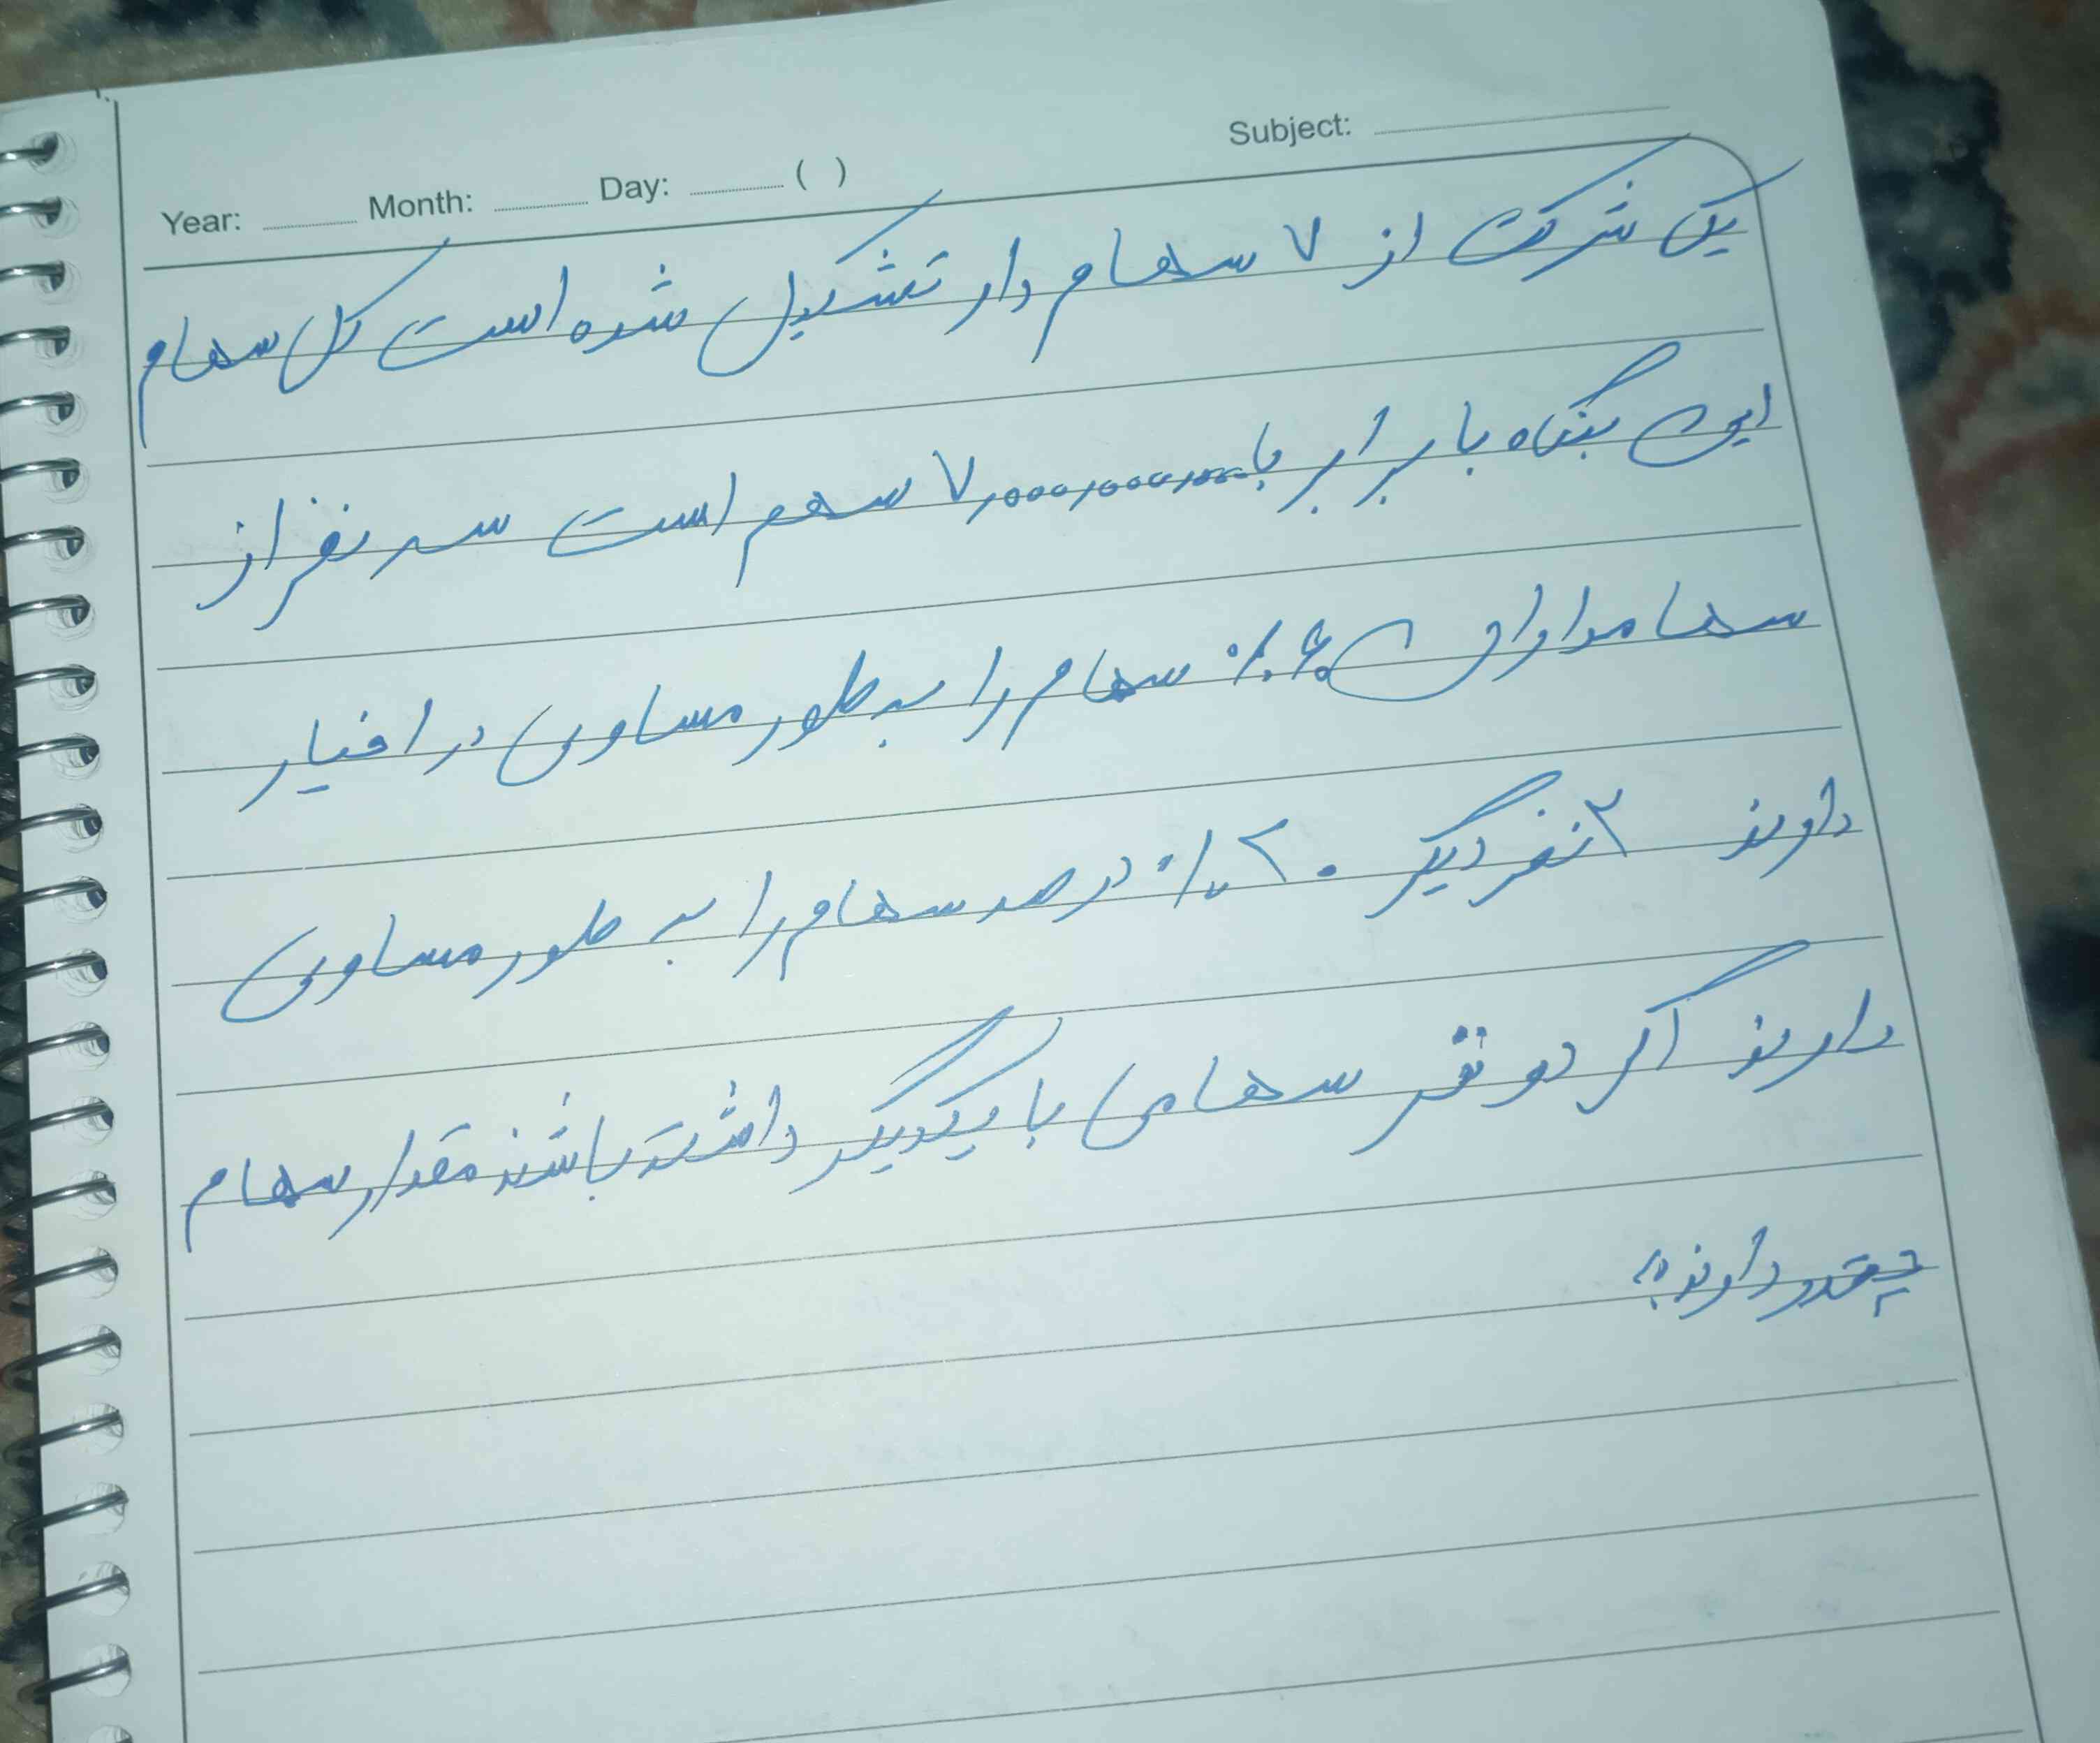 Subject:
Year: Month: Day: ( )
یک شرکت از ۷ سهام دار تشکیل شده است کل سهام
این بنگاه با برابر با ۷,۰۰۰,۰۰۰,۰۰۰ سهم است سه نفر از
سهامداران ۶۰٪ سهام را به طور مساوی در اختیار
دارند ۲ نفر دیگر ۲۰٪ درصد سهام را به طور مساوی
دارند اگر دو نفر سهامی با یکدیگر داشته باشند مقدار سهام
چقدر دارند؟